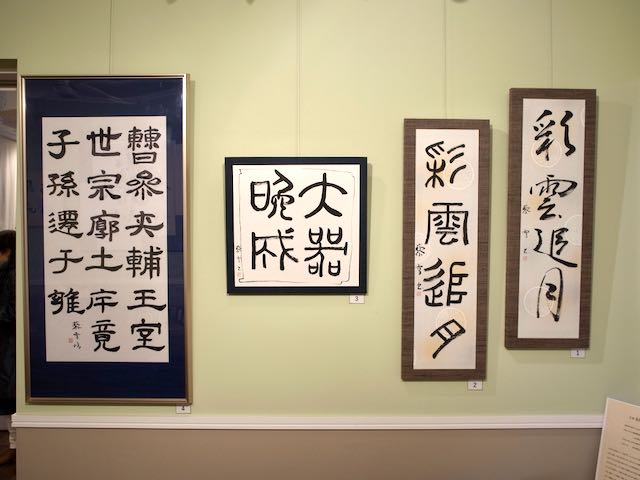 彩雲追月
1
彩雲追月
2
大器
晩成
3
曹参夾輔王室
世宗廓土斥竟
子孫遷于雍
4